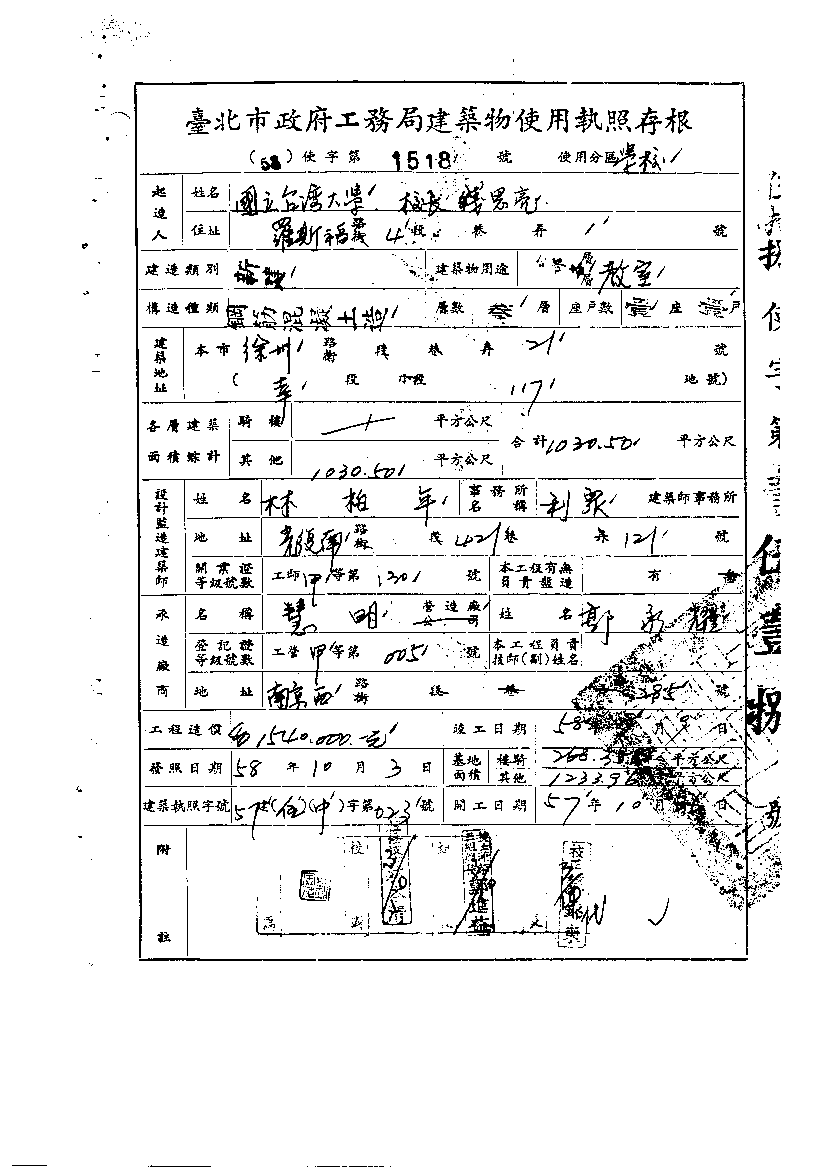 臺北市政府工務局建築物使用執照存根
(58)使字第 1518 號 使用分區 學校
起造人 姓名 國立台灣大學 校長 錢思亮
住址 羅斯福路 4段 巷 弄 1 號
建造類別 新建 建築物用途 教室
構造種類 鋼筋混凝土造 層數 叁 層 座戶數 壹 座 壹 戶
建築地址 本市 徐州 路街 段 巷 弄 21 號
( 段 小段 117 地號)
各層建築面積綜計 騎樓 平方公尺 合計 1030.50 平方公尺
其他 1030.50 平方公尺
設計監造建築師 姓名 林柏年 事務所名稱 利眾 建築師事務所
地址 光復南 路街 段 421 巷 弄 12 號
開業證等級號數 工師 甲 等第 1301 號 本工程有無負責監造 有 無
承造廠商 名稱 慧明 營造廠公司 姓名 鄭
登記證等級號數 工營 甲 等第 005 號 本工程負責技師(副)姓名
地址 南京西 路街 段 巷 285 號
工程造價 1540.000.元 竣工日期 58 年 月 9 日
發照日期 58 年 10 月 3 日 基地面積 樓騎 268. 平方公尺
其他 1233.9 平方公尺
建築執照字號 57 建(中)字第 023 號 開工日期 57 年 10 月 日
附註
使字第壹伍壹捌號